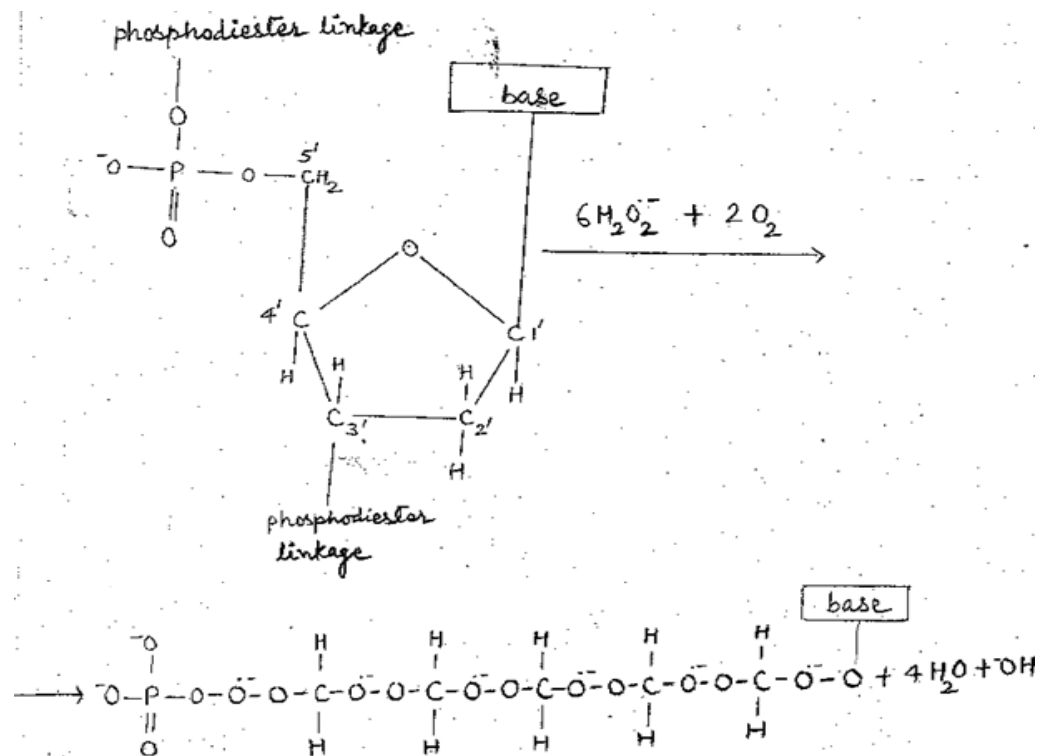 phosphodiester linkage
base
O
⁻O—P—O—5'CH₂
O
O
6H₂O₂·⁻ + 2O₂
4' C
C1'
H
H
H
H
C3'
C2'
H
phosphodiester
linkage
base
⁻O
H H H H H
⁻O-P-O-O·⁻-O-C-O-O·⁻-O-C-O-O·⁻-O-C-O-O·⁻-O-C-O-O·⁻-O-C-O·⁻-O + 4H₂O + ⁻OH
O
H H H H H